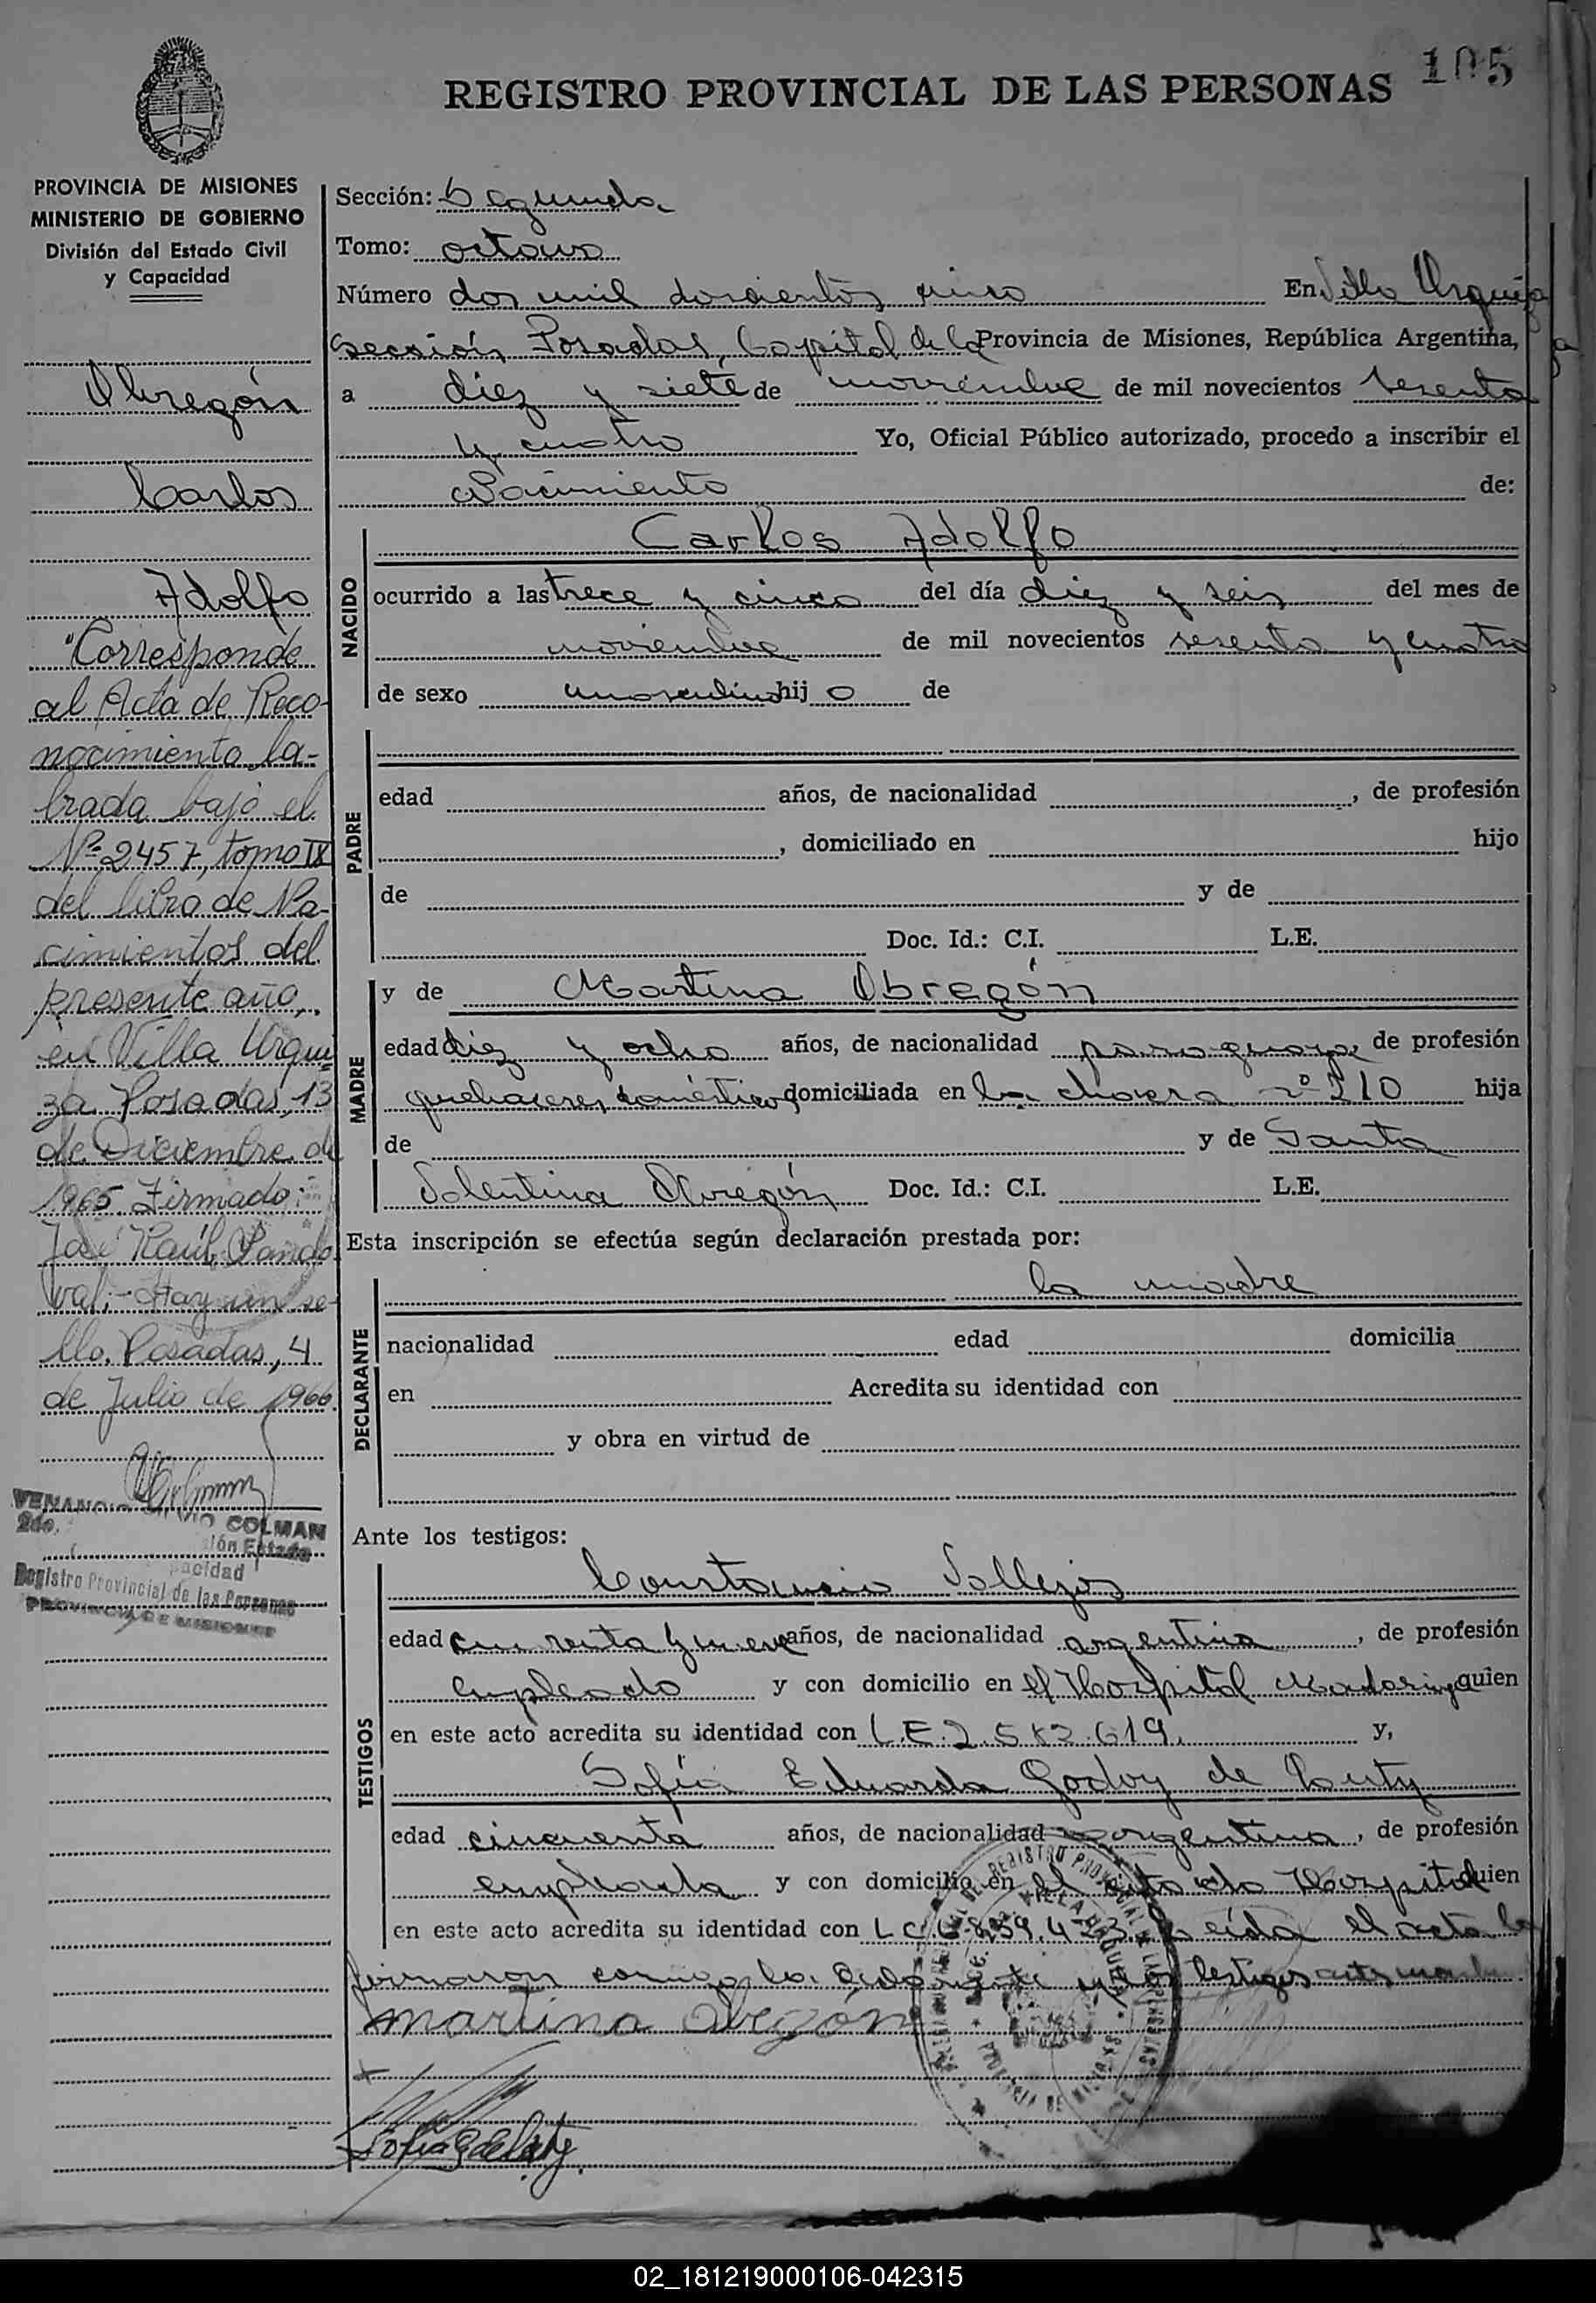 REGISTRO PROVINCIAL DE LAS PERSONAS
105
PROVINCIA DE MISIONES
MINISTERIO DE GOBIERNO
División del Estado Civil
y Capacidad
Obregón
Carlos
Adolfo
"Corresponde
al Acta de Reco-
nocimiento la-
brada bajo el
Nº 2457, tomo IX
del libro de Na-
cimientos del
presente año,
en Villa Urqui
za Posadas, 13
de Diciembre de
1965 Firmado:
José Raúl Sando
val.- Hay un se-
llo. Posadas, 4
de Julio de 1966.
VENANCIO COLMAN
2do.
ión Estado
pacidad
Registro Provincial de las Personas
PROVINCIA DE MISIONES
Sección: Segunda
Tomo: octavo
Número dos mil doscientos cinco En Villa Urquiza
sección Posadas, Capital de la Provincia de Misiones, República Argentina,
a diez y siete de noviembre de mil novecientos sesenta
y cuatro Yo, Oficial Público autorizado, procedo a inscribir el
Nacimiento de:
NACIDO
Carlos Adolfo
ocurrido a las trece y cinco del día diez y seis del mes de
noviembre de mil novecientos sesenta y cuatro
de sexo masculino hij o de
PADRE
edad años, de nacionalidad , de profesión
, domiciliado en hijo
de y de
Doc. Id.: C.I. L.E.
MADRE
y de Martina Obregón
edad diez y ocho años, de nacionalidad paraguaya de profesión
quehaceres domésticos domiciliada en la chacra nº 210 hija
de y de Santa
Valentina Obregón Doc. Id.: C.I. L.E.
Esta inscripción se efectúa según declaración prestada por:
DECLARANTE
la madre
nacionalidad edad domicilia
en Acredita su identidad con
y obra en virtud de
Ante los testigos:
TESTIGOS
Constancio Vallejos
edad y nueve años, de nacionalidad argentina , de profesión
empleado y con domicilio en el Hospital quien
en este acto acredita su identidad con L.E. 2.582.619. y,
Sofía Eduarda Godoy de
edad cincuenta años, de nacionalidad argentina , de profesión
empleada y con domicilio en el citado Hospital quien
en este acto acredita su identidad con L.C. Leída el acta la
firmaron conmigo la y los testigos
Martina Obregón
02_181219000106-042315